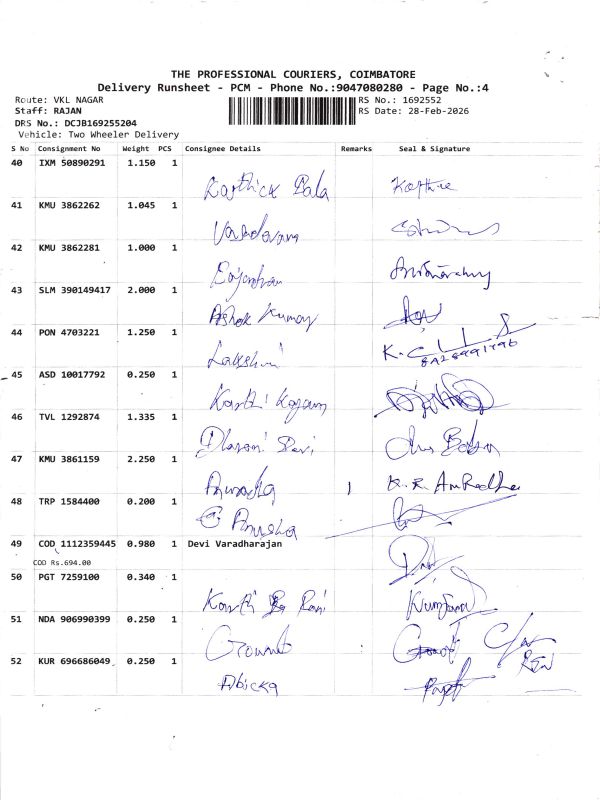 THE PROFESSIONAL COURIERS, COIMBATORE
Delivery Runsheet - PCM - Phone No.:9047080280 - Page No.:4
Route: VKL NAGAR
Staff: RAJAN
DRS No.: DCJB169255204
Vehicle: Two Wheeler Delivery
RS No.: 1692552
RS Date: 28-Feb-2026
S No Consignment No Weight PCS Consignee Details Remarks Seal & Signature
40 IXM 50890291 1.150 1
Karthick Bala
41 KMU 3862262 1.045 1
42 KMU 3862281 1.000 1
43 SLM 390149417 2.000 1
Ashok Kumar
44 PON 4703221 1.250 1
Lakshmi
45 ASD 10017792 0.250 1
46 TVL 1292874 1.335 1
Devi
47 KMU 3861159 2.250 1
Anuradha K.R. AnuRadha
48 TRP 1584400 0.200 1
Anusha
49 COD 1112359445 0.980 1 Devi Varadharajan
COD Rs.694.00
50 PGT 7259100 0.340 1
51 NDA 906990399 0.250 1
52 KUR 696686049 0.250 1
Abicka